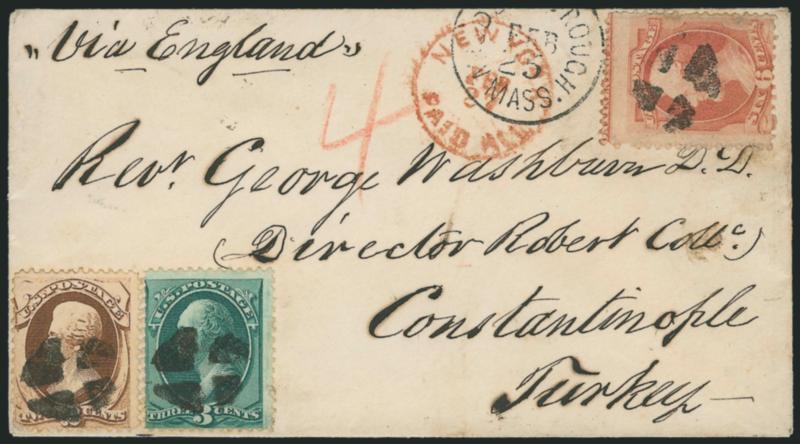 „Via England”
NEW YO
PAID ALL
ROUGH.
FEB
23
MASS.
4
U.S. POSTAGE
Revr. George Washburn D.D.
(Director Robert Collc.)
Constantinople
Turkey
U.S. POSTAGE
U.S. POSTAGE
THREE 3 CENTS